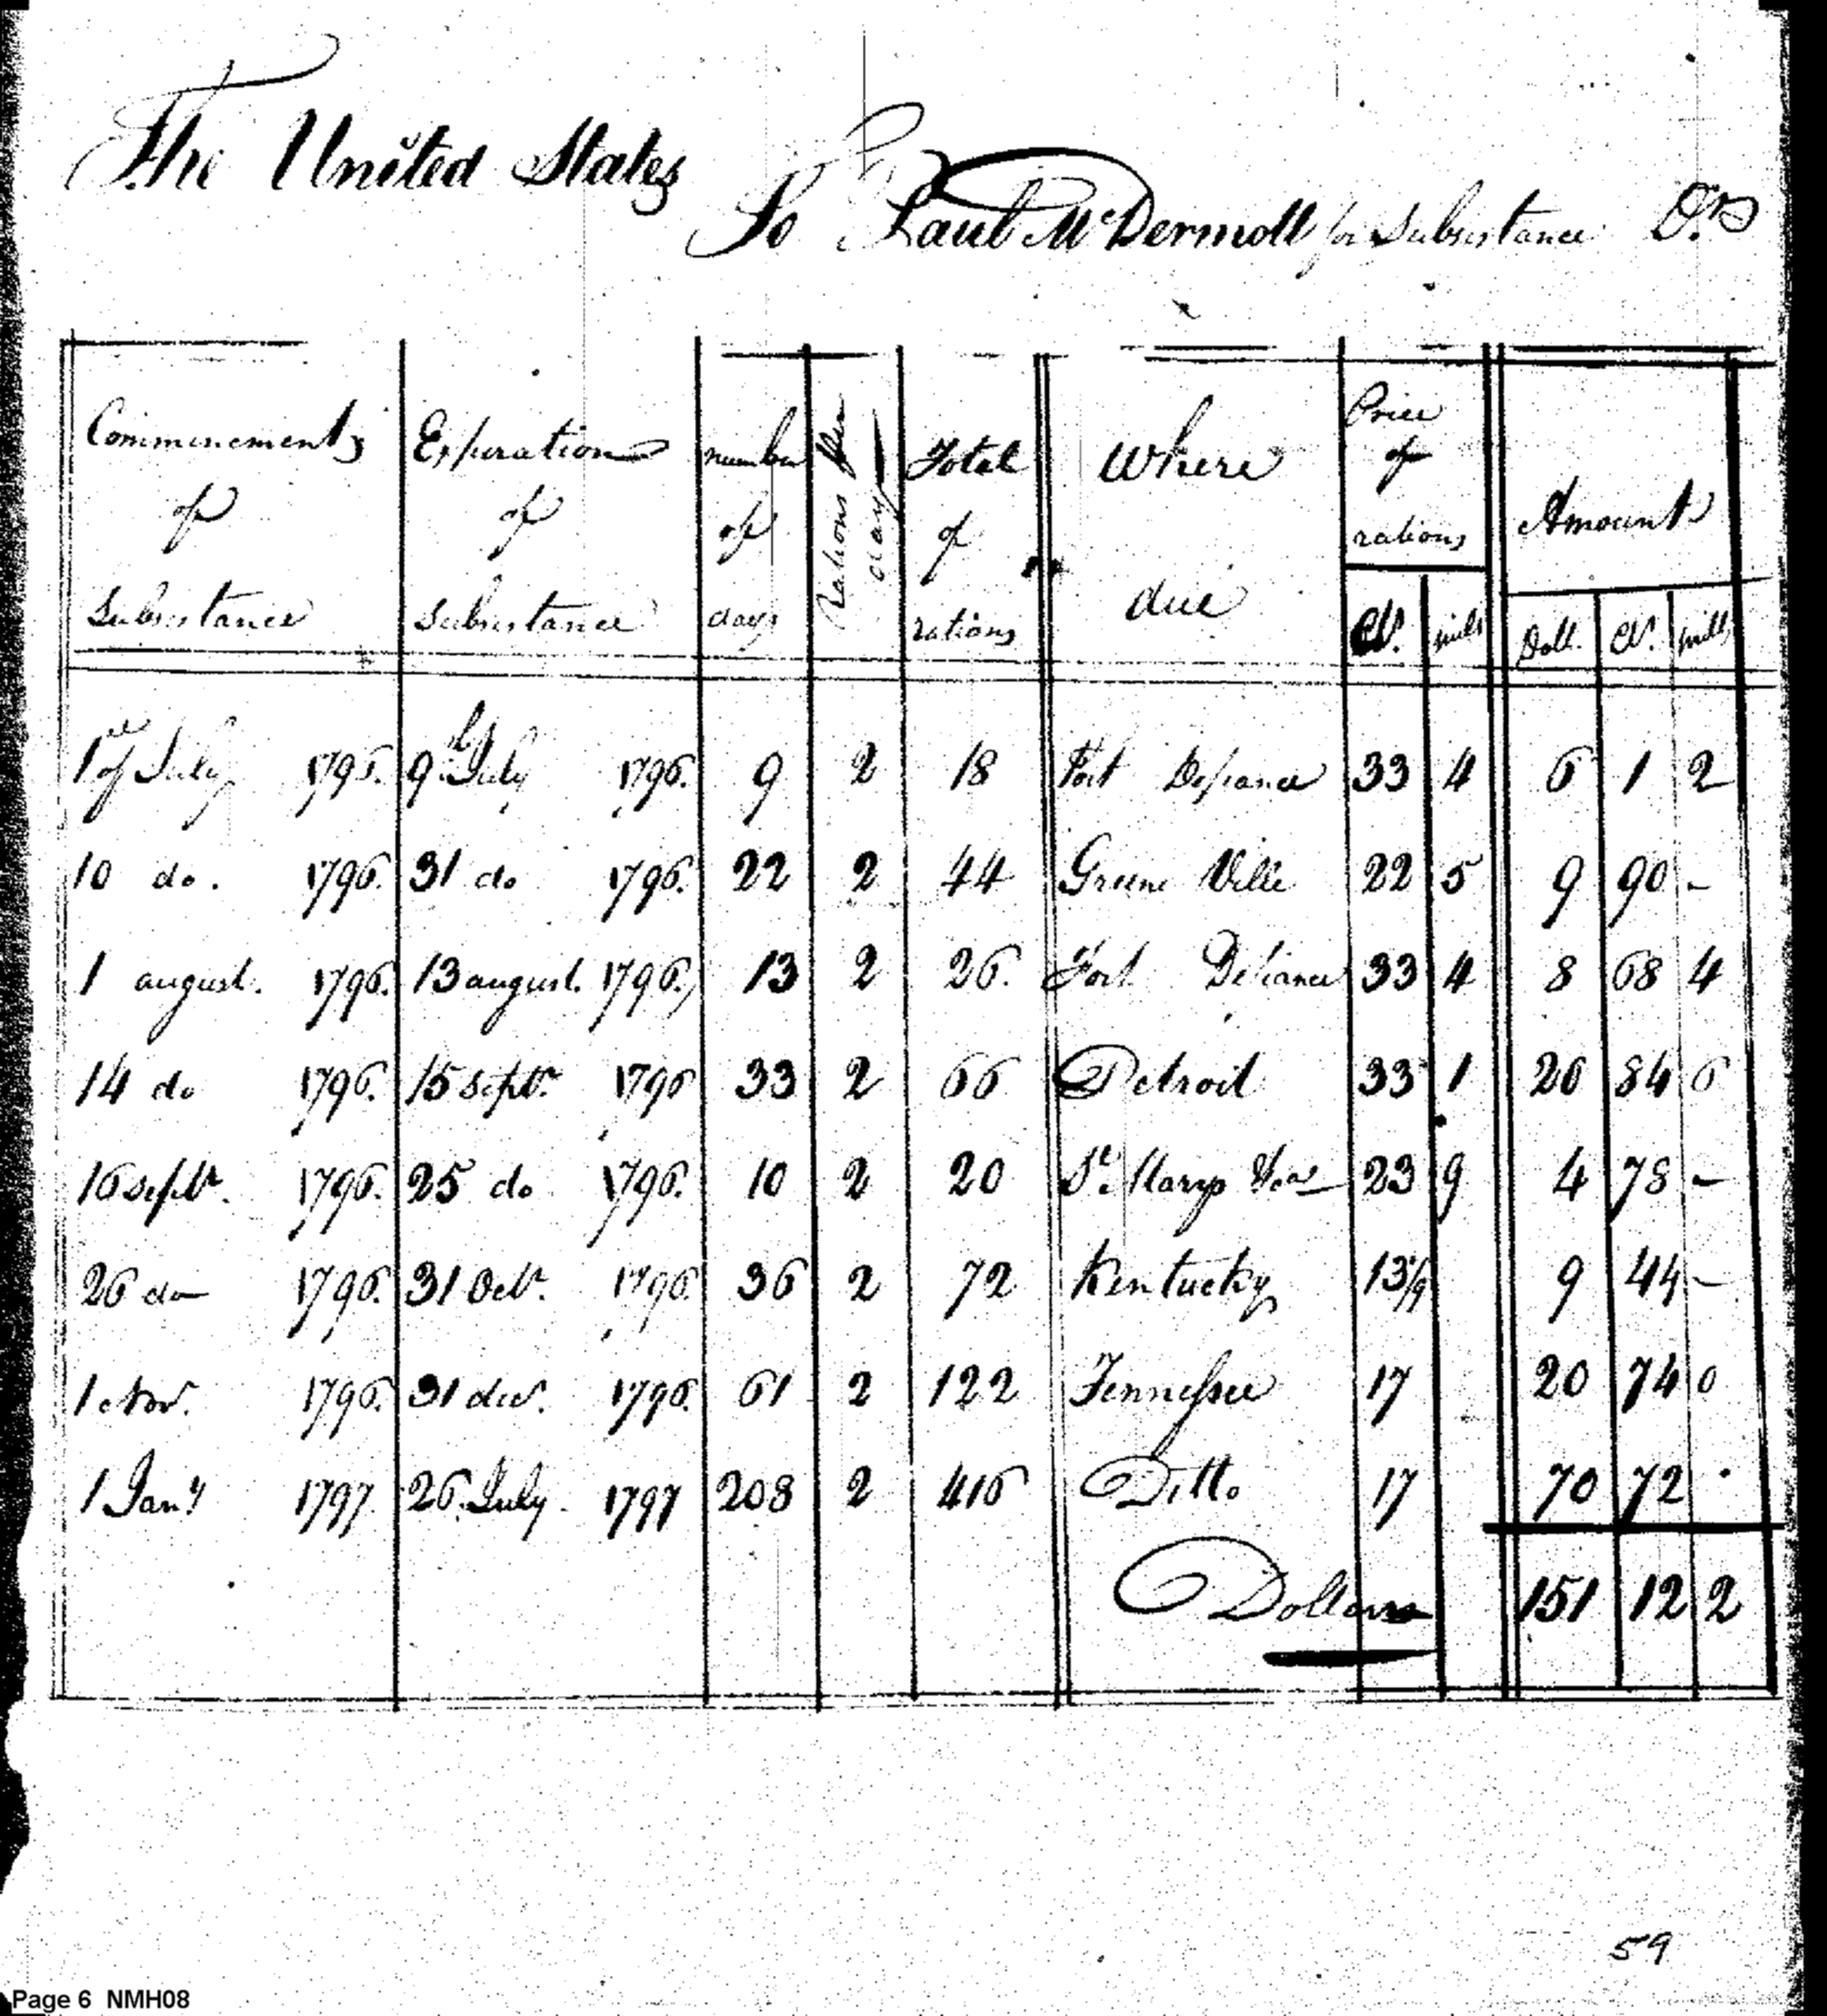 The United States
To Paul McDermott for Subsistance Drs
Commencements of Subsistance | Expiration of Subsistance | number of days | Rations per day | Total of rations | Where due | Price of rations Cts. mills | Amount Doll. Cts. mills
1st of July 1796. | 9th July 1796. | 9 | 2 | 18 | Fort Defiance | 33 | 4 | 6 | 1 | 2
10 do. 1796. | 31 do 1796. | 22 | 2 | 44 | Greene Ville | 22 | 5 | 9 | 90 | -
1 august. 1796. | 13 august. 1796. | 13 | 2 | 26. | Fort Defiance | 33 | 4 | 8 | 68 | 4
14 do 1796. | 15 septr. 1796 | 33 | 2 | 66 | Detroit | 33 | 1 | 20 | 84 | 6
16 septr. 1796. | 25 do 1796. | 10 | 2 | 20 | St. Marys | 23 | 9 | 4 | 78 | -
26 do 1796. | 31 Octr. 1796. | 36 | 2 | 72 | Kentucky | 13/9 | 9 | 44 | -
1 Nov. 1796. | 31 decr. 1796. | 61 | 2 | 122 | Tennessee | 17 | 20 | 74 | 0
1 Jany 1797. | 26. July. 1797 | 208 | 2 | 416 | Ditto | 17 | 70 | 72 | .
Dollars | 151 | 12 | 2
59
Page 6 NMH08